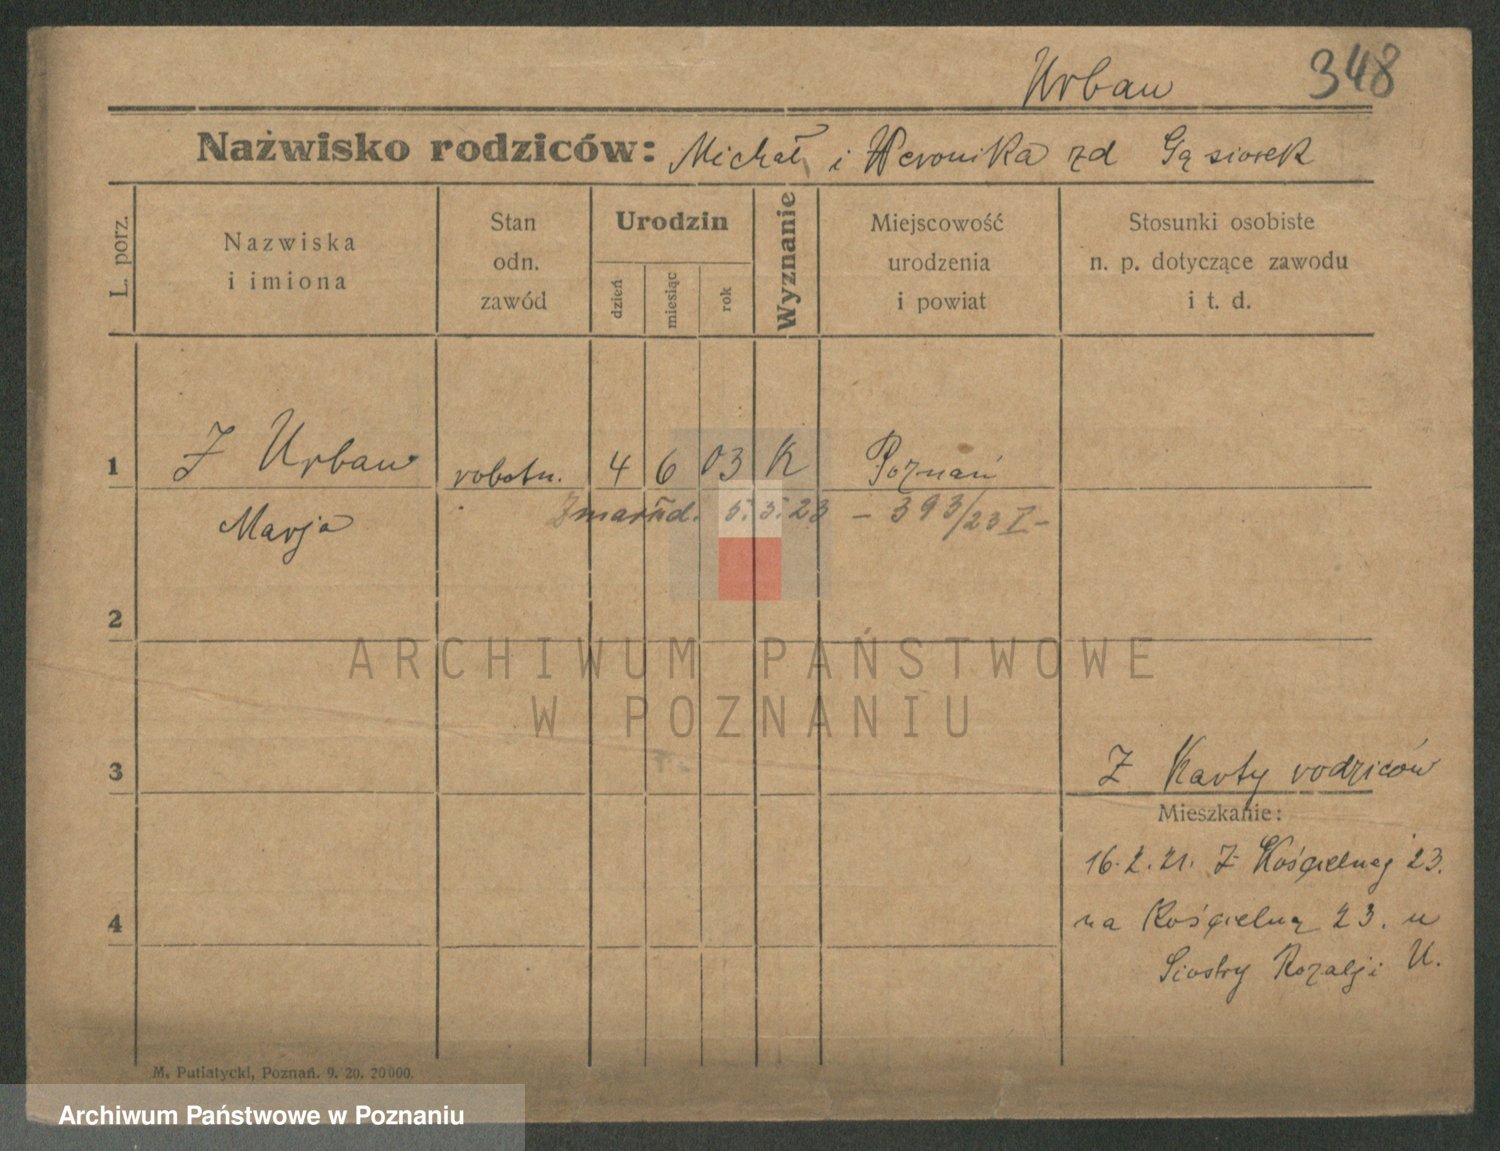 Urban 348
Nazwisko rodziców: Michał i Weronika zd Gąsiorek
L. porz.
Nazwiska
i imiona
Stan
odn.
zawód
Urodzin
dzień
miesiąc
rok
Wyznanie
Miejscowość
urodzenia
i powiat
Stosunki osobiste
n. p. dotyczące zawodu
i t. d.
1 Ż Urban robotn. 4 6 03 K Poznań
Marja
5.5.23 – 393/23 I –
2
ARCHIWUM PAŃSTWOWE
W POZNANIU
3
Z Karty rodziców
Mieszkanie:
16.2.21. Z Kościelnej 23.
na Kościelną 23. u
Siostry Rozalji U.
4
M. Putiatycki, Poznań. 9. 20. 20000.
Archiwum Państwowe w Poznaniu